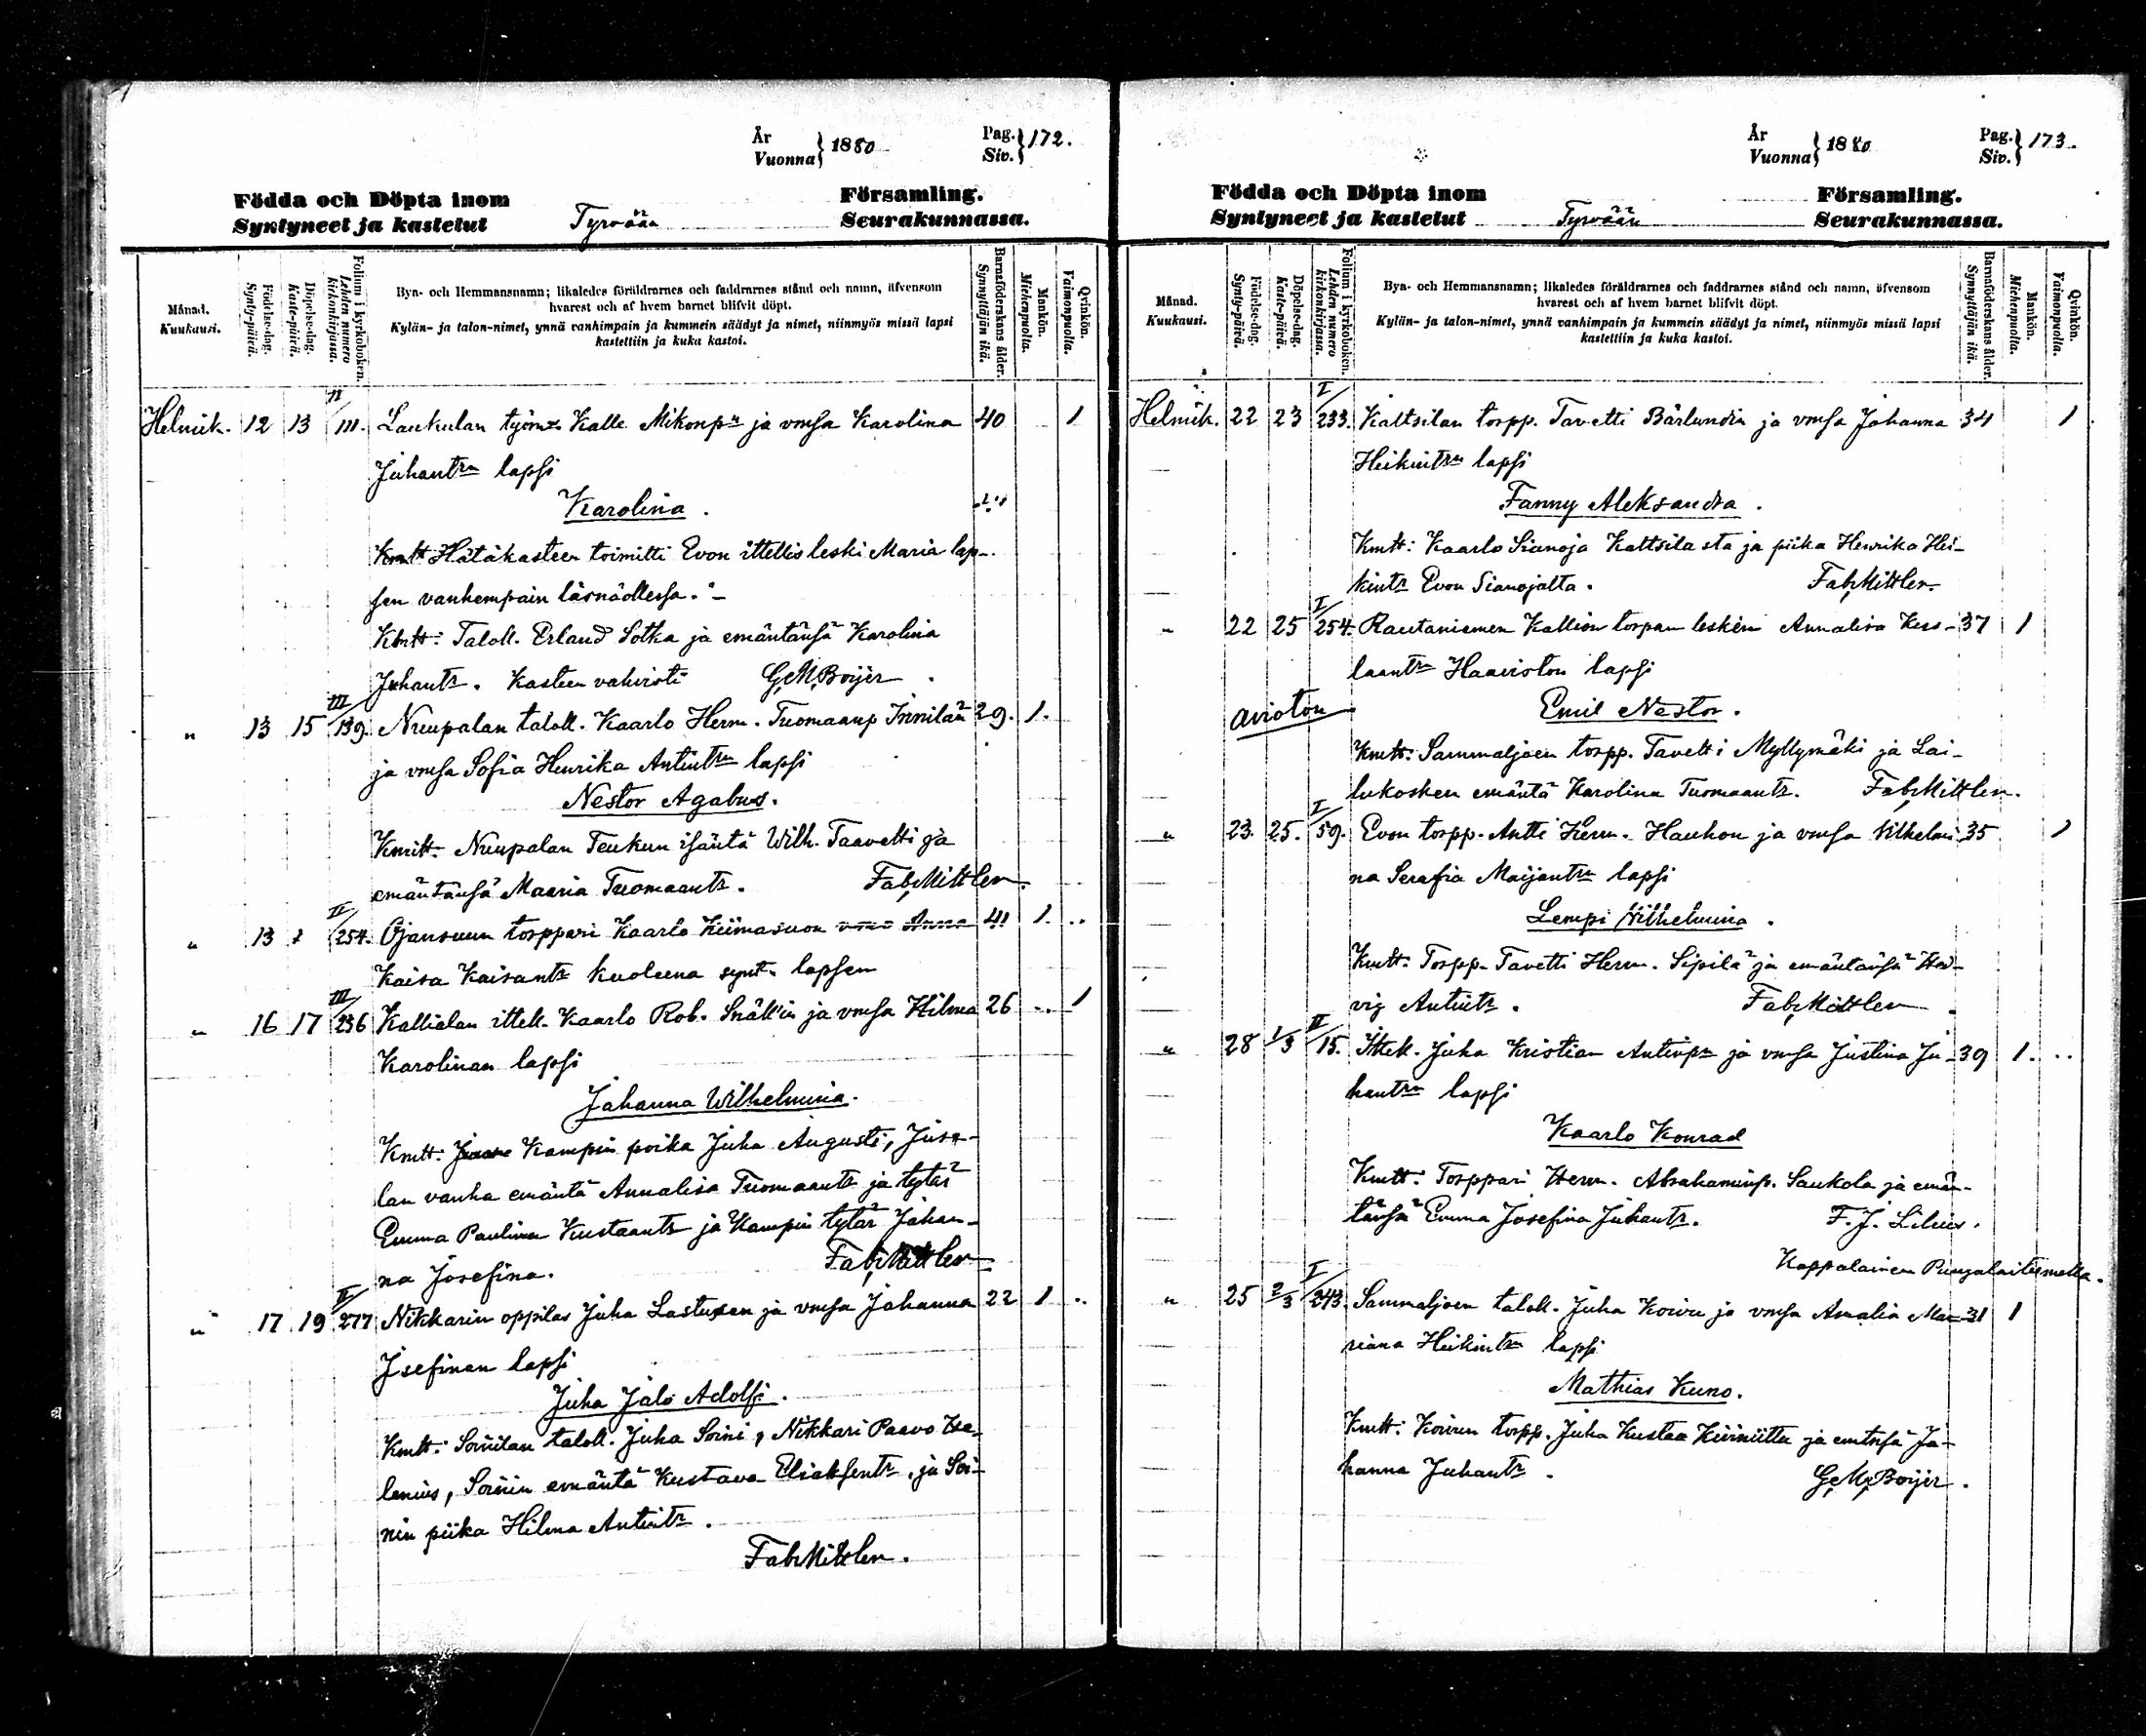 År
Vuonna } 1880
Pag.
Siv. } 172.
Födda och Döpta inom Församling.
Syntyneet ja kastetut Tyrvään Seurakunnassa.
Månad.
Kuukausi.
Födelse-dag.
Synty-päivä.
Döpelse-dag.
Kaste-päivä.
Folium i kyrkoboken.
Lehden numero kirkonkirjassa.
Bya- och Hemmansnamn; likaledes föräldrarnes och faddrarnes stånd och namn, äfvensom
hvarest och af hvem barnet blifvit döpt.
Kylän- ja talon-nimet, ynnä vanhimpain ja kummein säädyt ja nimet, niinmyös missä lapsi
kastettiin ja kuka kastoi.
Barnaföderskans ålder.
Synnyttäjän ikä.
Mankön.
Miehenpuolia.
Qvinkön.
Vaimonpuolia.
Helmik. 12 13 II/111. Laukulan työm. Kalle Mikonp:n ja vmsa Karolina 40 1
Juhantr:n lapsi
Karolina.
Hätäkasteen toimitti Evon ittellis leski Maria lap-
sen vanhempain läsnäollessa.
Kmtt: Taloll. Erland Sotka ja emäntänsä Karolina
Juhantr. Kasteen vahvisti G.M.Boijer.
" 13 15 III/139. Nuupalan taloll. Kaarlo Herm. Tuomaanp Innilän 29. 1.
ja vmsa Sofia Henrika Antintr:n lapsi
Nestor Agabus.
Kmtt: Nuupalan Teukun isäntä Wilh. Taavetti ja
emäntänsä Maaria Tuomaantr. Fab.Mittler.
" 13 † II/254. Ojansuun torppari Kaarlo Kiimasuon vmo Anna 41 1.
Kaisa Kaisantr kuoleena synt. lapsen
" 16 17 III/256 Kallialan ittell. Kaarlo Rob. Snäll'in ja vmsa Hilma 26 1
Karolinan lapsi
Johanna Wilhelmina.
Kmtt: Kampin poika Juha Augusti, Juse-
lan vanha emäntä Annaliisa Tuomaantr ja tytär
Emma Paulina Kustaantr ja Kampin tytär Johan-
na Josefina. Fab.Mittler
" 17 19 II/277 Nikkarin oppilas Juha Lastusen ja vmsa Johanna 22 1
Josefinan lapsi
Juha Jalo Adolfi.
Kmtt: Soinilan taloll. Juha Soini, Nikkari Paavo He-
lenius, Soinin emäntä Kustava Eliaksentr, ja Soi-
nin piika Hilma Antintr.
Fab.Mittler.
År
Vuonna } 1880
Pag.
Siv. } 173.
Födda och Döpta inom Församling.
Syntyneet ja kastetut Tyrvään Seurakunnassa.
Månad.
Kuukausi.
Födelse-dag.
Synty-päivä.
Döpelse-dag.
Kaste-päivä.
Folium i kyrkoboken.
Lehden numero kirkonkirjassa.
Bya- och Hemmansnamn; likaledes föräldrarnes och faddrarnes stånd och namn, äfvensom
hvarest och af hvem barnet blifvit döpt.
Kylän- ja talon-nimet, ynnä vanhimpain ja kummein säädyt ja nimet, niinmyös missä lapsi
kastettiin ja kuka kastoi.
Barnaföderskans ålder.
Synnyttäjän ikä.
Mankön.
Miehenpuolia.
Qvinkön.
Vaimonpuolia.
Helmik. 22 23 I/233. Kaltsilan torpp. Tavetti Bärlundin ja vmsa Johanna 34 1
Heikintr:n lapsi
Fanny Aleksandra.
Kmtt: Kaarlo Sianoja Kaltsilasta ja piika Henrika Hei-
kintr Evon Sianojalta. Fab.Mittler.
" 22 25 I/254. Rautaniemen Kallion torpan lesken Annalisa Kus- 37 1
taantr Haaviston lapsi
avioton Emil Nestor.
Kmtt: Sammaljoen torpp. Tavetti Myllymäki ja Lai-
lukosken emäntä Karolina Tuomaantr. Fab.Mittler.
" 23. 25. I/59. Evon torpp. Antti Herm. Hauhon ja vmsa Vilhelmi- 35 1
na Serafia Maijantr:n lapsi
Lempi Wilhelmina.
Kmtt: Torpp. Tavetti Herm. Sipilä ja emäntänsä Hed-
vig Antintr. Fab.Mittler
" 28 1/3 II/15. Ittell. Juha Kristian Antinp:n ja vmsa Justina Ju- 39 1.
hantr:n lapsi
Kaarlo Konrad
Kmtt: Torppari Herm. Abrahaminp. Saukola ja emän-
tänsä Emma Josefina Juhantr. F. J. Lilius.
Kappalainen Pungalaitumella.
" 25 2/3 I/243. Sammaljoen taloll. Juha Koivu ja vmsa Amalia Ma- 31 1
riana Heikintr:n lapsi
Mathias Kuno.
Kmtt: Koivun torpp. Juha Kustaa Kiviniittu ja emtnsä Jo-
hanna Juhantr. G.M.Boijer.